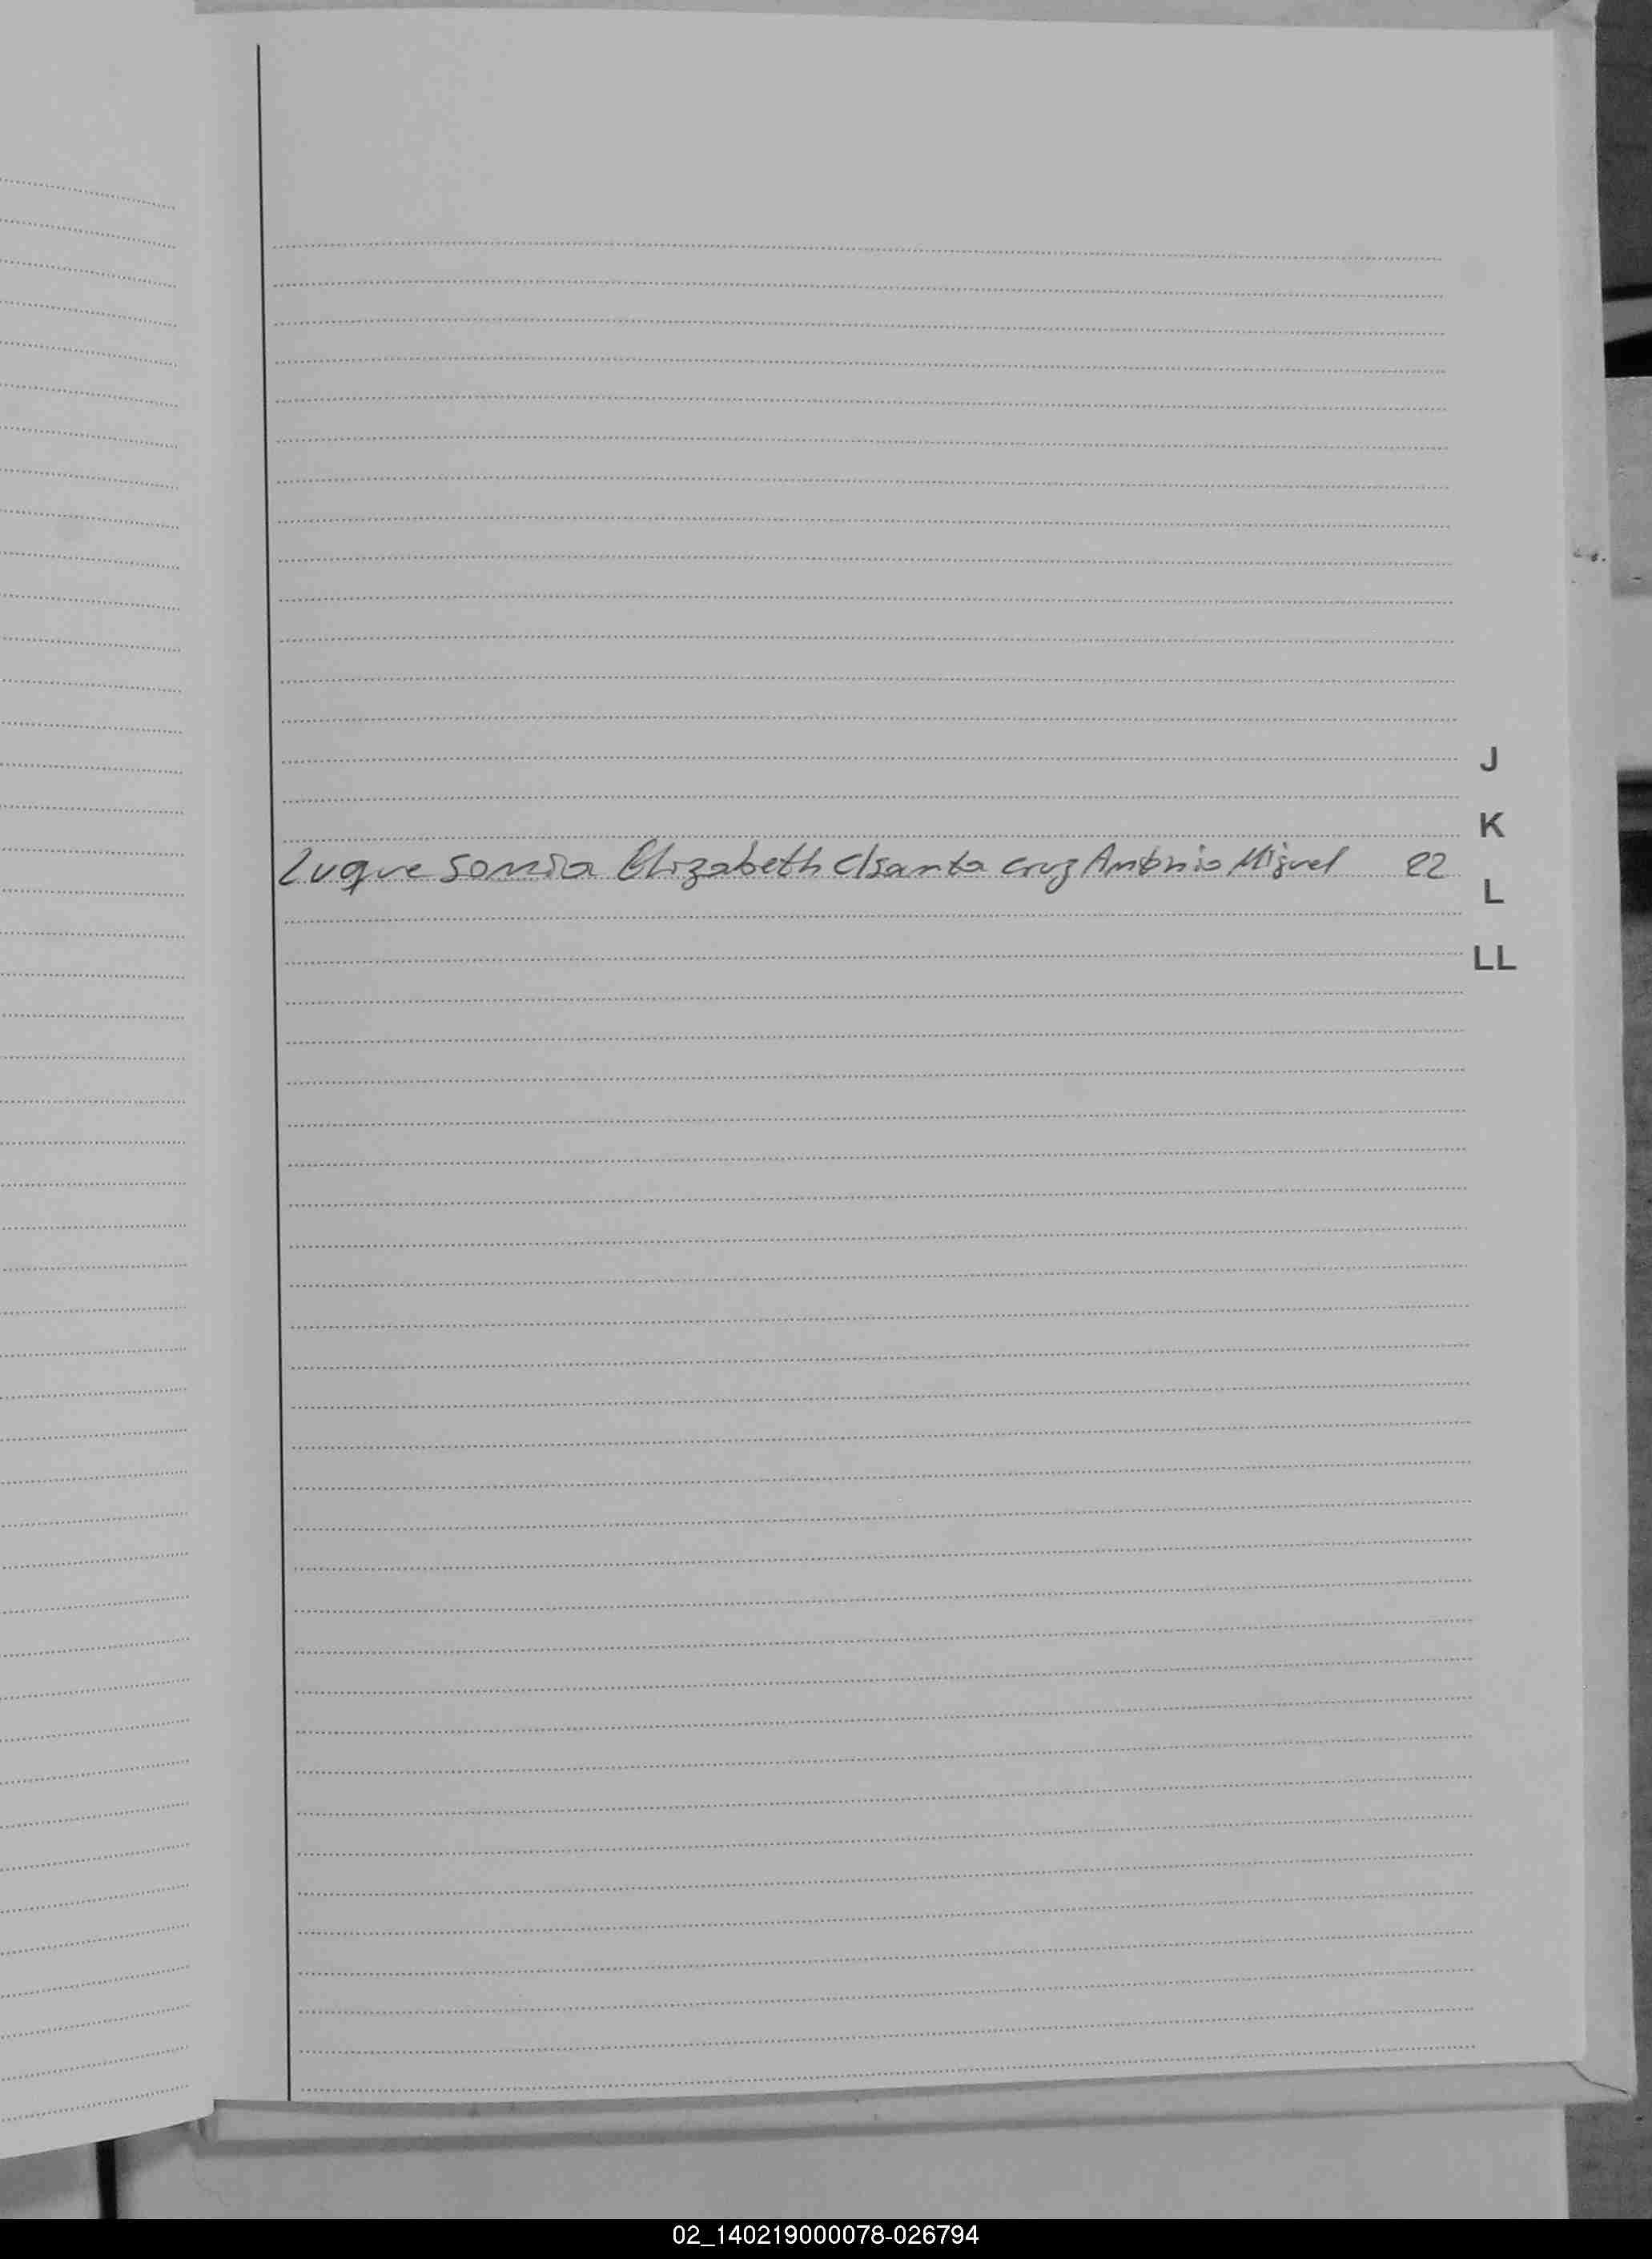 J
K
Luque Sonia Elizabeth c/Santa Cruz Antonio Miguel 22
L
LL
02_140219000078-026794